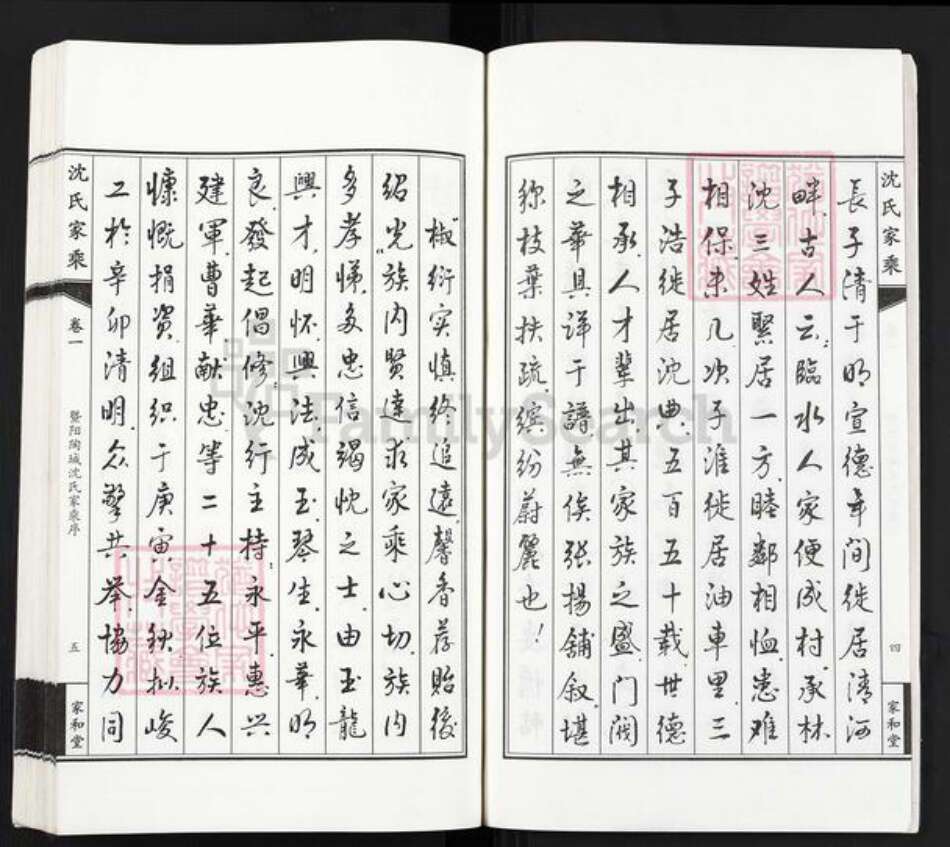 沈氏家乘
四
家和堂
長子清于明宣德年间徙居清河
畔.古人云:臨水人家便成村.承林
沈三姓聚居一方.睦鄰相恤.患难
相保.未几.次子淮徙居油車里.三
子浩徙居沈典.五百五十载.世德
相承.人才輩出.其家族之盛.门阀
之華具详于譜.無俟张揚舖叙.堪
称枝葉扶疏.缤纷蔚麗也!
椒衍实慎終追遠.馨香荐貽後
紹光.族内賢達求家乘心切.族内
多孝悌.多忠信竭忱之士.由玉龍
興才.明怀.興法成玉.琴生.永華.明
良.發起倡修.沈行主持.永平.惠兴
建軍.曹華献忠等二十五位族人
慷慨捐资.组织于庚寅金秋.拟峻
工於辛卯清明.众擎共举.協力同
沈氏家乘
卷一
暨阳陶城沈氏家乘序
五
家和堂
FamilySearch